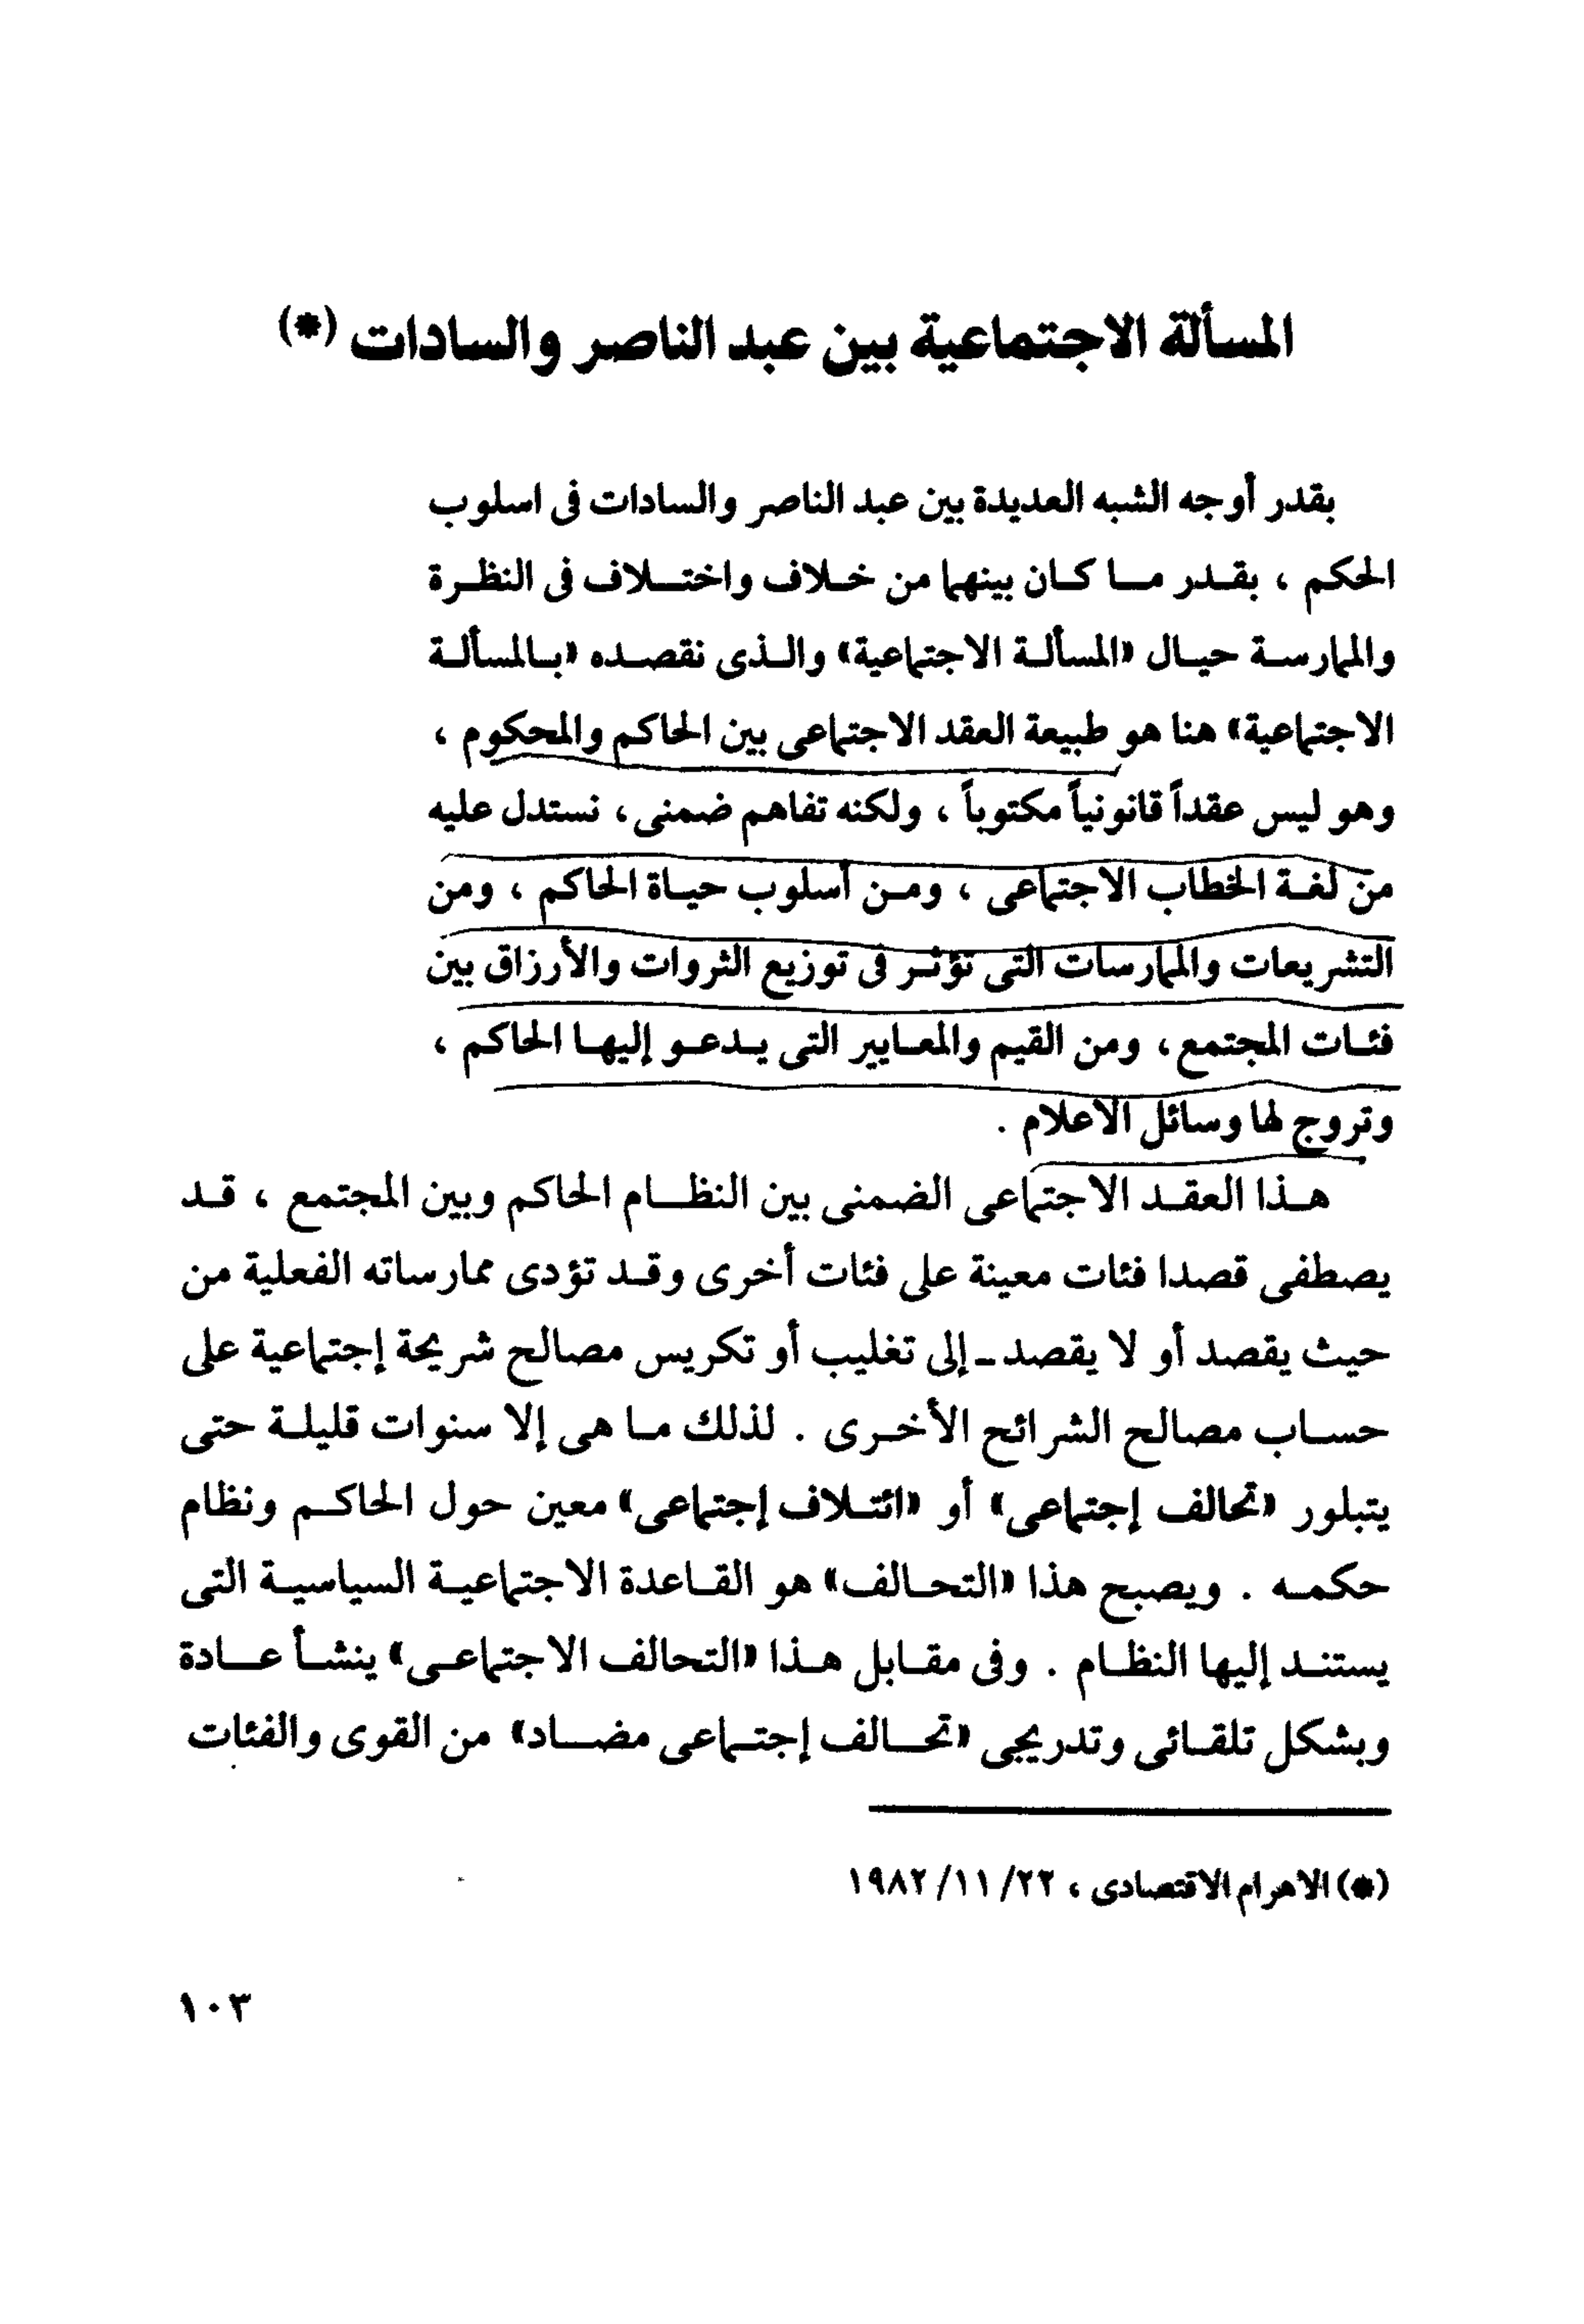 المسألة الاجتماعية بين عبد الناصر والسادات (*)
بقدر أوجه الشبه العديدة بين عبد الناصر والسادات فى اسلوب
الحكم ، بقدر ما كان بينهما من خلاف واختلاف فى النظرة
والممارسة حيال «المسألة الاجتماعية» والذى نقصده «بالمسألة
الاجتماعية» هنا هو طبيعة العقد الاجتماعى بين الحاكم والمحكوم ،
وهو ليس عقداً قانونياً مكتوباً ، ولكنه تفاهم ضمنى، نستدل عليه
من لغة الخطاب الاجتماعى ، ومن أسلوب حياة الحاكم ، ومن
التشريعات والممارسات التى تؤثر فى توزيع الثروات والأرزاق بين
فئات المجتمع، ومن القيم والمعايير التى يدعو إليها الحاكم ،
وتروج لها وسائل الاعلام .
هذا العقد الاجتماعى الضمنى بين النظام الحاكم وبين المجتمع ، قد
يصطفى قصدا فئات معينة على فئات أخرى وقد تؤدى ممارساته الفعلية من
حيث يقصد أو لا يقصد - إلى تغليب أو تكريس مصالح شريحة إجتماعية على
حساب مصالح الشرائح الأخرى . لذلك ما هى إلا سنوات قليلة حتى
يتبلور «تحالف إجتماعى» أو «ائتلاف إجتماعى» معين حول الحاكم ونظام
حكمه . ويصبح هذا «التحالف» هو القاعدة الاجتماعية السياسية التى
يستند إليها النظام . وفى مقابل هذا «التحالف الاجتماعى» ينشأ عادة
وبشكل تلقائى وتدريجى «تحالف إجتماعى مضاد» من القوى والفئات
(*) الاهرام الاقتصادى ، ٢٢/ ١١/ ١٩٨٢
١٠٣